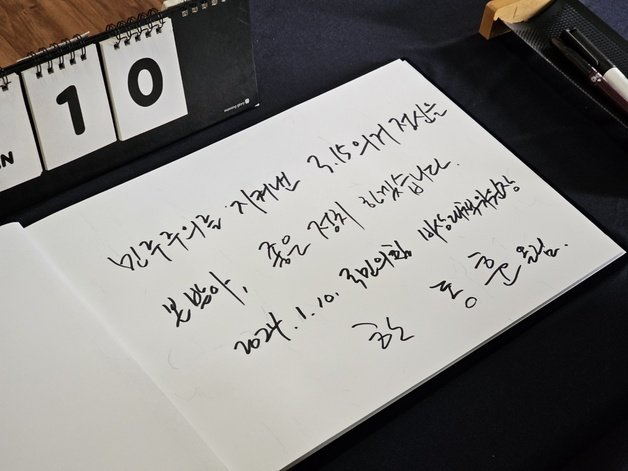 AN
1
0
민주주의를 지켜낸 3.15의거 정신을
본받아, 좋은 정치 하겠습니다.
2024.1.10. 국민의힘 비상대책위원장
한 동 훈 올림.